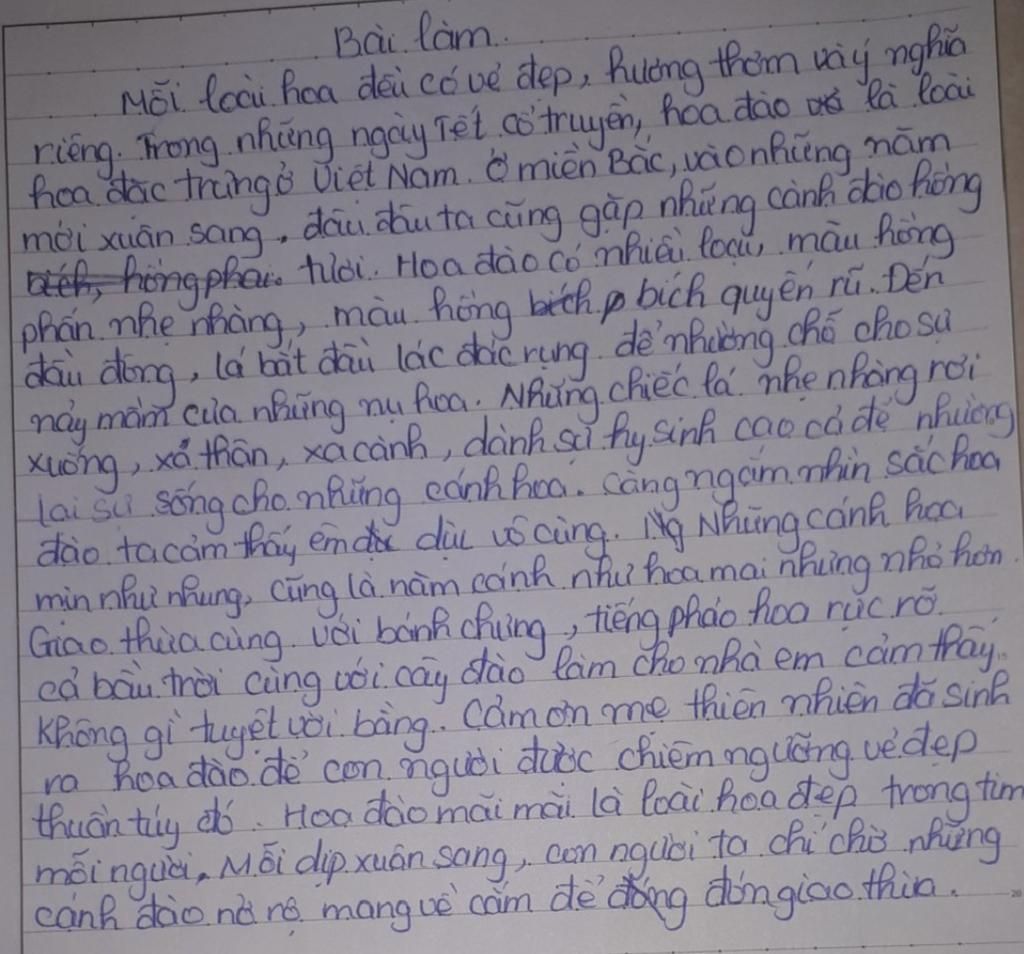 Bài làm.
Mỗi loài hoa đều có vẻ đẹp, hương thơm và ý nghĩa
riêng. Trong những ngày Tết cổ truyền, hoa đào là loài
hoa đặc trưng ở Việt Nam. Ở miền Bắc, vào những năm
mới xuân sang, đâu đâu ta cũng gặp những cành đào hồng
bích, hồng phai tươi. Hoa đào có nhiều loại, màu hồng
phấn nhẹ nhàng, màu hồng bích bích quyến rũ. Đến
đầu đông, lá bắt đầu lác đác rụng để nhường chỗ cho sự
nảy mầm của những nụ hoa. Những chiếc lá nhẹ nhàng rơi
xuống, xả thân, xa cành, dành sự hy sinh cao cả để nhường
lại sự sống cho những cánh hoa. Càng ngắm nhìn sắc hoa
đào ta cảm thấy êm dịu vô cùng. Ng Những cánh hoa
mịn như nhung, cũng là năm cánh như hoa mai nhưng nhỏ hơn.
Giao thừa cùng với bánh chưng, tiếng pháo hoa rực rỡ
cả bầu trời cùng với cây đào làm cho nhà em cảm thấy
không gì tuyệt vời bằng. Cảm ơn mẹ thiên nhiên đã sinh
ra hoa đào để con người được chiêm ngưỡng vẻ đẹp
thuần túy đó. Hoa đào mãi mãi là loài hoa đẹp trong tim
mỗi người. Mỗi dịp xuân sang, con người ta chỉ chờ những
cánh đào nở rộ mang về cắm để đón giao thừa.